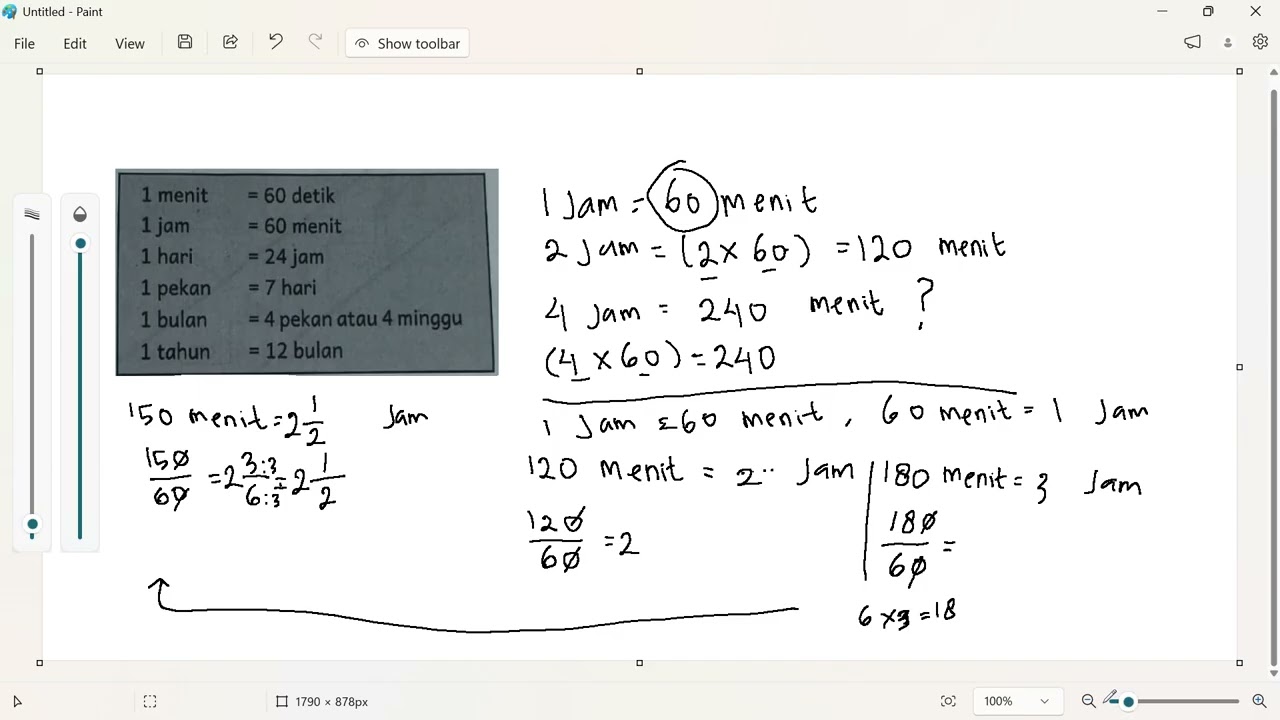 Untitled - Paint
File Edit View Show toolbar
1 menit = 60 detik
1 jam = 60 menit
1 hari = 24 jam
1 pekan = 7 hari
1 bulan = 4 pekan atau 4 minggu
1 tahun = 12 bulan
1 Jam = 60 menit
2 Jam = (2 x 60) = 120 menit
4 Jam = 240 menit ?
(4 x 60) = 240
1 Jam = 60 menit, 60 menit = 1 Jam
120 Menit = 2 .. Jam
120/60 = 2
180 Menit = 3 Jam
180/60 =
6 x 3 = 18
150 menit = 2 1/2 Jam
150/60 = 2 3:3/6:3 = 2 1/2
1790 × 878px
100%